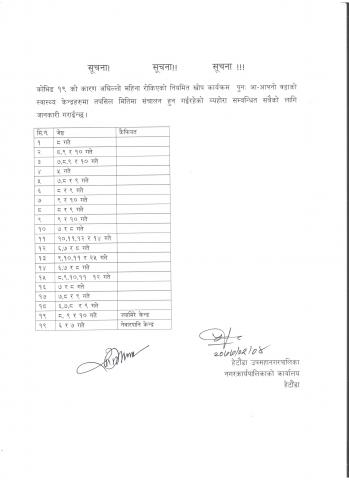 सूचना। सूचना!! सूचना !!!
कोभिड १९ को कारण अघिल्लो महिना रोकिएको नियमित खोप कार्यक्रम पुनः आ-आफ्नो वडाको
स्वास्थ्य केन्द्रहरुमा तपसिल मितिमा संचालन हुन गईरहेको व्यहोरा सम्बन्धित सबैको लागि
जानकारी गराईन्छ ।
सि.नं. जेष्ठ कैफियत
१ ८ गते
२ ८,९ र १० गते
३ ७,८,९ र १० गते
४ ५ गते
५ ७,८ र ९ गते
६ ८ र ९ गते
७ ९ र १० गते
८ ८ र ९ गते
९ ९ र १० गते
१० ७ र ८ गते
११ १०,११,१२ र १४ गते
१२ ६,७ र ८ गते
१३ ९,१०,११ र २५ गते
१४ ६,७ र ८ गते
१५ ८,९,१०,११ १२ गते
१६ ७ र ८ गते
१७ ७,८ र ९ गते
१८ ६,७,८ र ९ गते
१९ ८, ९ र १० गते केन्द्र
१९ ६ र ७ गते केन्द्र
हेटौंडा उपमहानगरपालिका
नगरकार्यपालिकाको कार्यालय
हेटौंडा